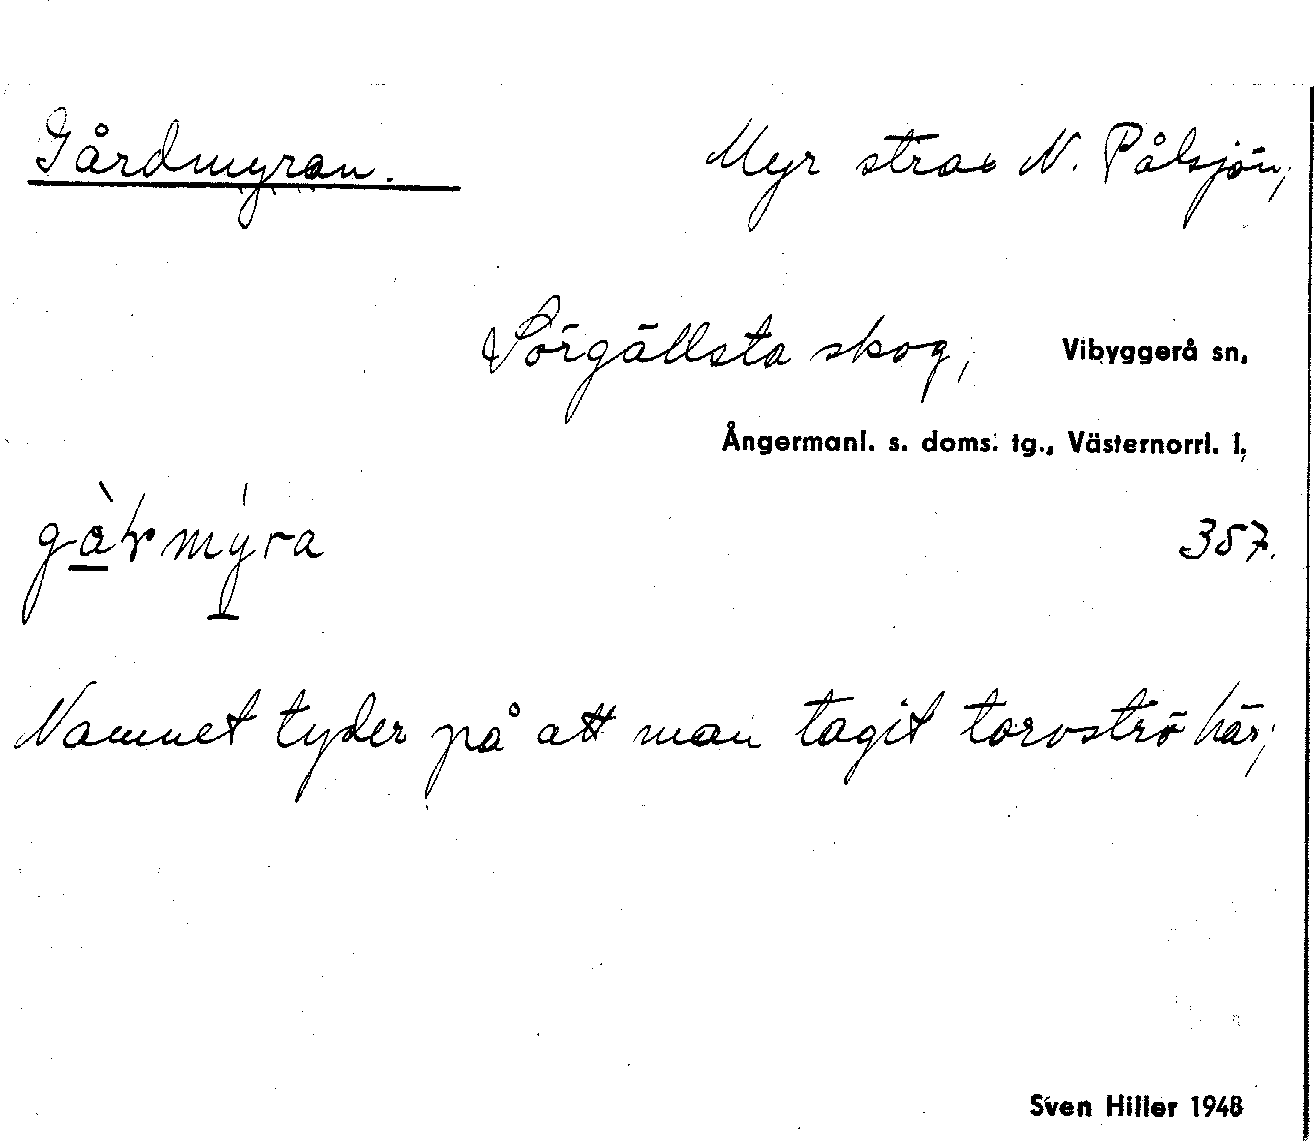 Gårdmyran. Myr strax N. Pålsjön,
Sörgällsta skog, Vibyggerå sn,
Ångermanl. s. doms. tg., Västernorrl. l,
357.
Namnet tyder på att man tagit torvströ här,
Sven Hiller 1948